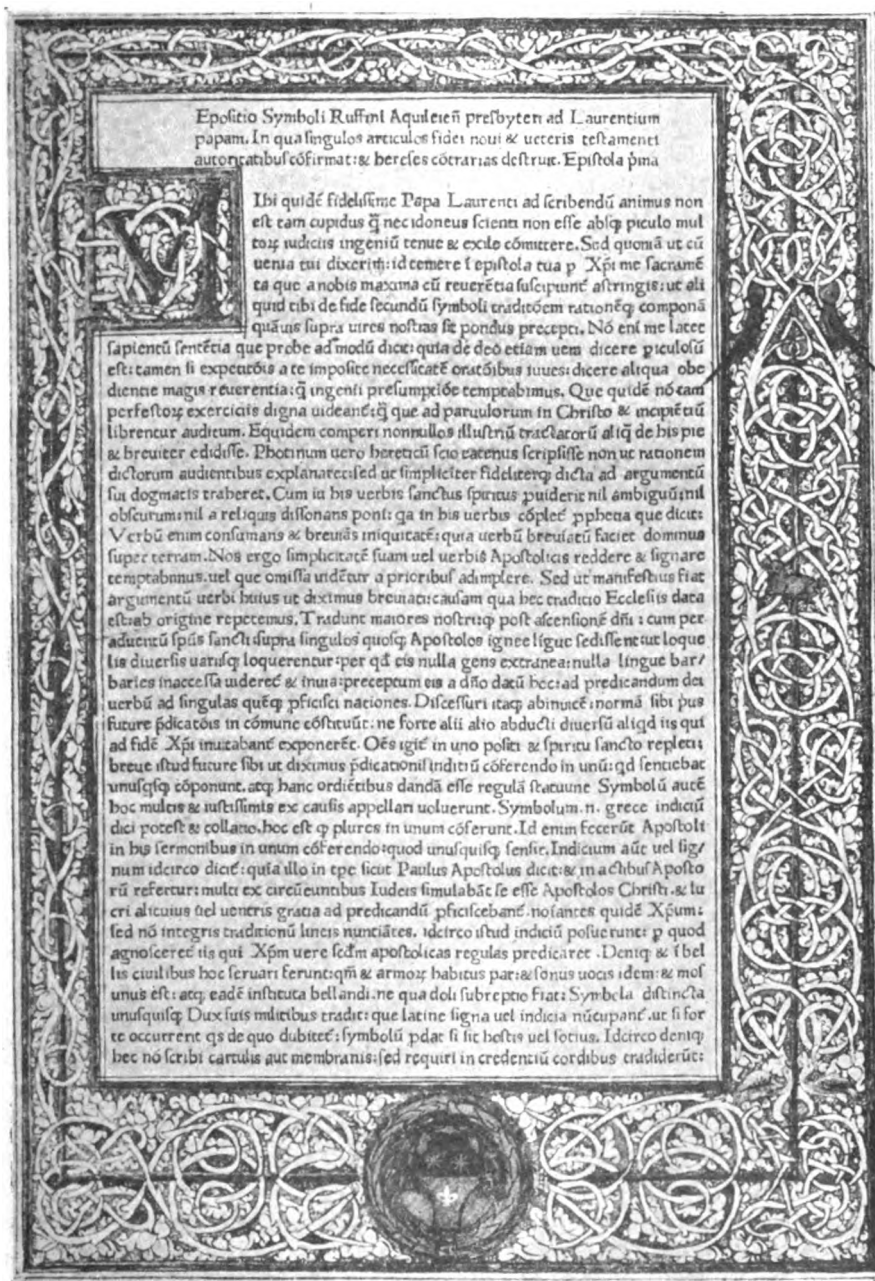 Epositio Symboli Ruffini Aquileień presbyteri ad Laurentium
papam. In qua singulos articulos fidei noui & ueteris testamenti
autoritatibus cōfirmat: & hereses cōtrarias destruit. Epistola p̄ma
VIbi quidē fidelissime Papa Laurenti ad scribendū animus non
est tam cupidus q̄ nec idoneus scienti non esse absq; piculo mul
toꝝ iudiciis ingeniū tenue & exile cōmittere. Sed quoniā ut cū
uenia tui dixerim: id temere ī epistola tua p Xp̄i me sacramē
ta que a nobis maxima cū reuerētia suscipiunt̄ astringis: ut ali
quid tibi de fide secundū symboli traditōem rationēq; componā
quāuis supra uires nostras sit pondus precepti. Nō eni me latet
sapientū sentētia que probe ad modū dicit: quia de deo etiam uera dicere piculosū
est: tamen si expetitōis a te imposite necessitatē oratōibus iuues: dicere aliqua obe
dientie magis reuerentia: q̄ ingenii presumptiōe temptabimus. Que quidē nō tam
perfectoꝝ exercitiis digna uideant̄: q̄ que ad paruulorum in Christo & incipiētiū
librentur auditum. Equidem comperi nonnullos illustriū tractatorū aliq̄ de his pie
& breuiter edidisse. Photinum uero hereticū scio eatenus scripsisse non ut rationem
dictorum audientibus explanaret: sed ut simpliciter fideliterq; dicta ad argumentū
sui dogmatis traheret. Cum in his uerbis sanctus spiritus puiderit nil ambiguū: nil
obscurum: nil a reliquis dissonans poni: qa in his uerbis cōplet̄ pphetia que dicit:
Verbū enim consumans & breuiās in iquitatē: quia uerbū breuiatū faciet dominus
super terram. Nos ergo simplicitatē suam uel uerbis Apostolicis reddere & signare
temptabimus. uel que omissa uidētur a prioribus adimplere. Sed ut manifestius fiat
argumentū uerbi huius ut diximus breuiati: causam qua hec traditio Ecclesiis data
est: ab origine repetemus. Tradunt maiores nostri: q; post ascensionē dn̄i: cum per
aduentū sp̄us sancti: supra singulos quosq; Apostolos ignee ligue sedissent: ut loque
lis diuersis uariisq; loquerentur: per qd̄ eis nulla gens extranea: nulla lingue bar/
baries inaccessa uideret̄ & inuia: preceptum eis a dn̄o datū hec: ad predicandum dei
uerbū ad singulas quēq; pficisci nationes. Discessuri itaq; abinuicē: normā sibi p̄us
future p̄dicatōis in cōmune cōstituūt: ne forte alii alio abducti diuersū aliqd iis qui
ad fidē Xp̄i inuitabant̄ exponerēt. Oēs igit̄ in uno positi & spiritu sancto repleti:
breue istud future sibi ut diximus p̄dicationis inditiū cōferendo in unū: qd sentiebat
unusqsq; cōponunt. atq; hanc ordiētibus dandā esse regulā statuunt Symbolū autē
hoc multis & iustissimis ex causis appellari uoluerunt. Symbolum. n. grece indiciū
dici potest & collatio. hoc est q; plures in unum cōferunt. Id enim fecerūt Apostoli
in his sermonibus in unum cōferendo: quod unusquisq; sensit. Indicium aūt uel sig/
num idcirco dicit̄: quia illo in tp̄e sicut Paulus Apostolus dicit: & in actibus Aposto
rū refertur: multi ex circūeuntibus Iudeis simulabāt se esse Apostolos Christi. & lu
cri alicuius uel uentris gratia ad predicandū pficiscebant̄. noīantes quidē Xp̄um:
sed nō integris traditionū lineis nuntiātes. idcirco istud indiciū posuerunt: p quod
agnosceret̄ iis qui Xp̄m uere scdm̄ apostolicas regulas predicaret. Deniq; & ī bel
lis ciuilibus hoc seruari ferunt: qm̄ & armoꝝ habitus par: & sonus uocis idem: & mos
unus est: atq; eadē instituta bellandi. ne qua doli subreptio fiat: Symbola distincta
unusquisq; Dux suis militibus tradit: que latine signa uel indicia nūcupant̄. ut si for
te occurrerit qs de quo dubitet̄: symbolū pdat si sit hostis uel socius. Idcirco deniq;
hec nō scribi cartulis aut membranis: sed requiri in credentiū cordibus tradiderūt: